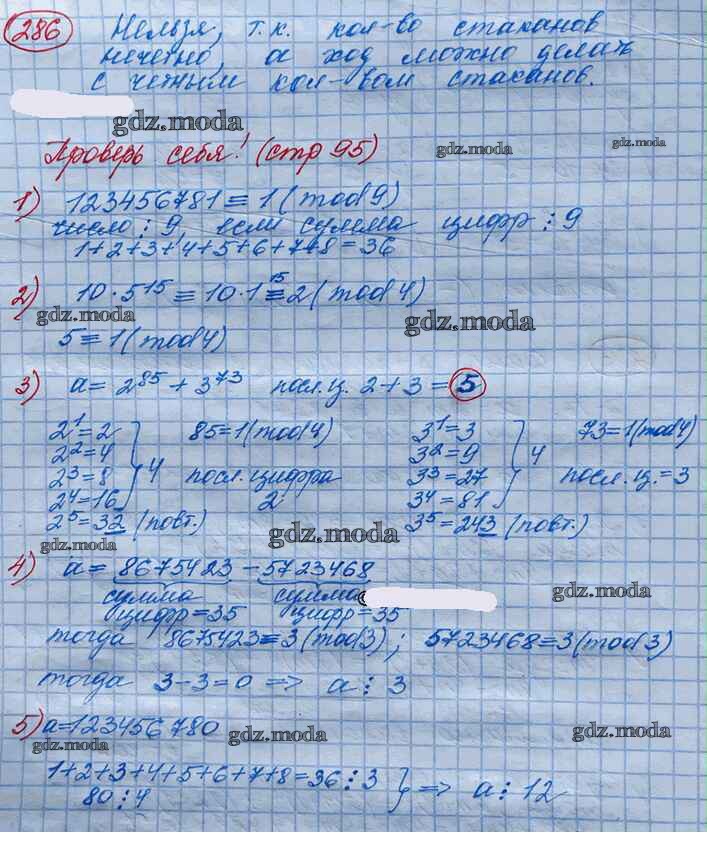 286 Нельзя, т.к. кол-во стаканов
нечетно, а ход можно делать
с четным кол-вом стаканов.
gdz.moda
Проверь себя! (стр 95)
gdz.moda
gdz.moda
1) 123456781 ≡ 1 (mod 9)
число ⋮ 9, если сумма цифр ⋮ 9
1+2+3+4+5+6+7+8=36
2) 10·5¹⁵ ≡ 10·1¹⁵ ≡ 2 (mod 4)
gdz.moda
gdz.moda
5 ≡ 1 (mod 4)
3) a = 2⁸⁵ + 3⁷³ посл.ц. 2+3 = 5
2¹=2 85=1(mod 4) 3¹=3 73=1(mod 4)
2²=4 3²=9
2³=8 4 посл. цифра 3³=27 4 посл. ц.=3
2⁴=16 2 3⁴=81
2⁵=32 (повт.) 3⁵=243 (повт.)
gdz.moda
gdz.moda
4) a = 8675423 − 5723468
сумма сумма
цифр=35 цифр=35
gdz.moda
тогда 8675423=3 (mod 3); 5723468=3 (mod 3)
тогда 3−3=0 => a ⋮ 3
5) a=123456780
gdz.moda
gdz.moda
gdz.moda
1+2+3+4+5+6+7+8=36 ⋮ 3
80 ⋮ 4 } => a ⋮ 12